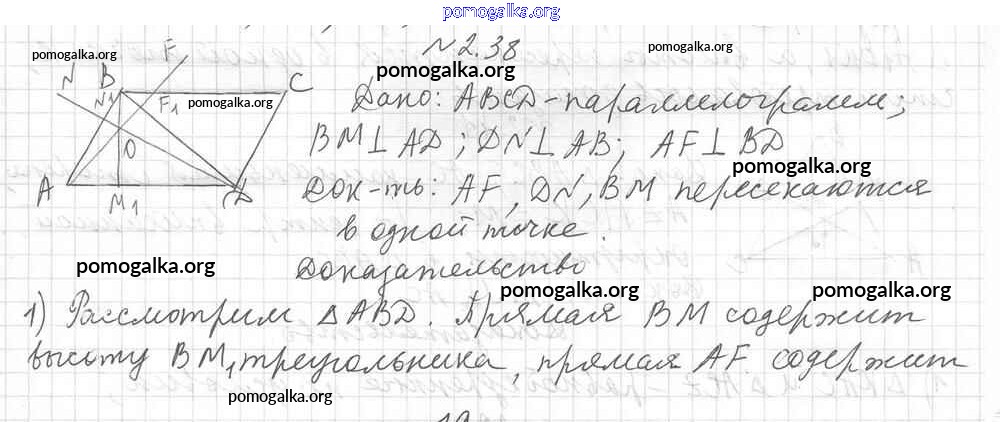 pomogalka.org
N 2.38
pomogalka.org
pomogalka.org
pomogalka.org
N B N1 F F1 C
pomogalka.org
O
A M1 D
Дано: ABCD-параллелограмм;
BM⊥AD; DN⊥AB; AF⊥BD
pomogalka.org
Док-ть: AF, DN, BM пересекаются
в одной точке.
pomogalka.org
Доказательство
pomogalka.org
pomogalka.org
1) Рассмотрим △ABD. Прямая BM содержит
высоту BM1 треугольника, прямая AF содержит
pomogalka.org